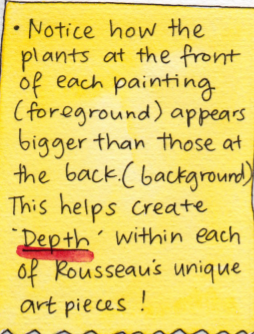 • Notice how the
plants at the front
of each painting
(foreground) appears
bigger than those at
the back.(background)
This helps create
"Depth" within each
of Rousseau's unique
art pieces !